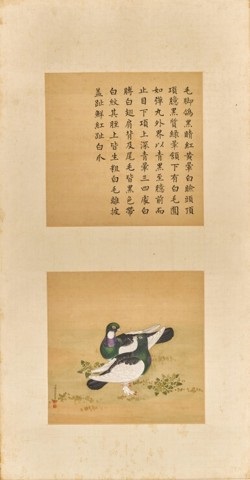 毛脚鴿黑睛紅黃暈白臉頭頂
項臆黑質綠暈頷下有白毛圓
如彈丸外界以青黑至臆前而
止目下項上深青暈三四處白
膊白翅肩背及尾毛皆黑色帶
白紋其脛上皆生粗白毛離披
蓋趾鮮紅趾白爪